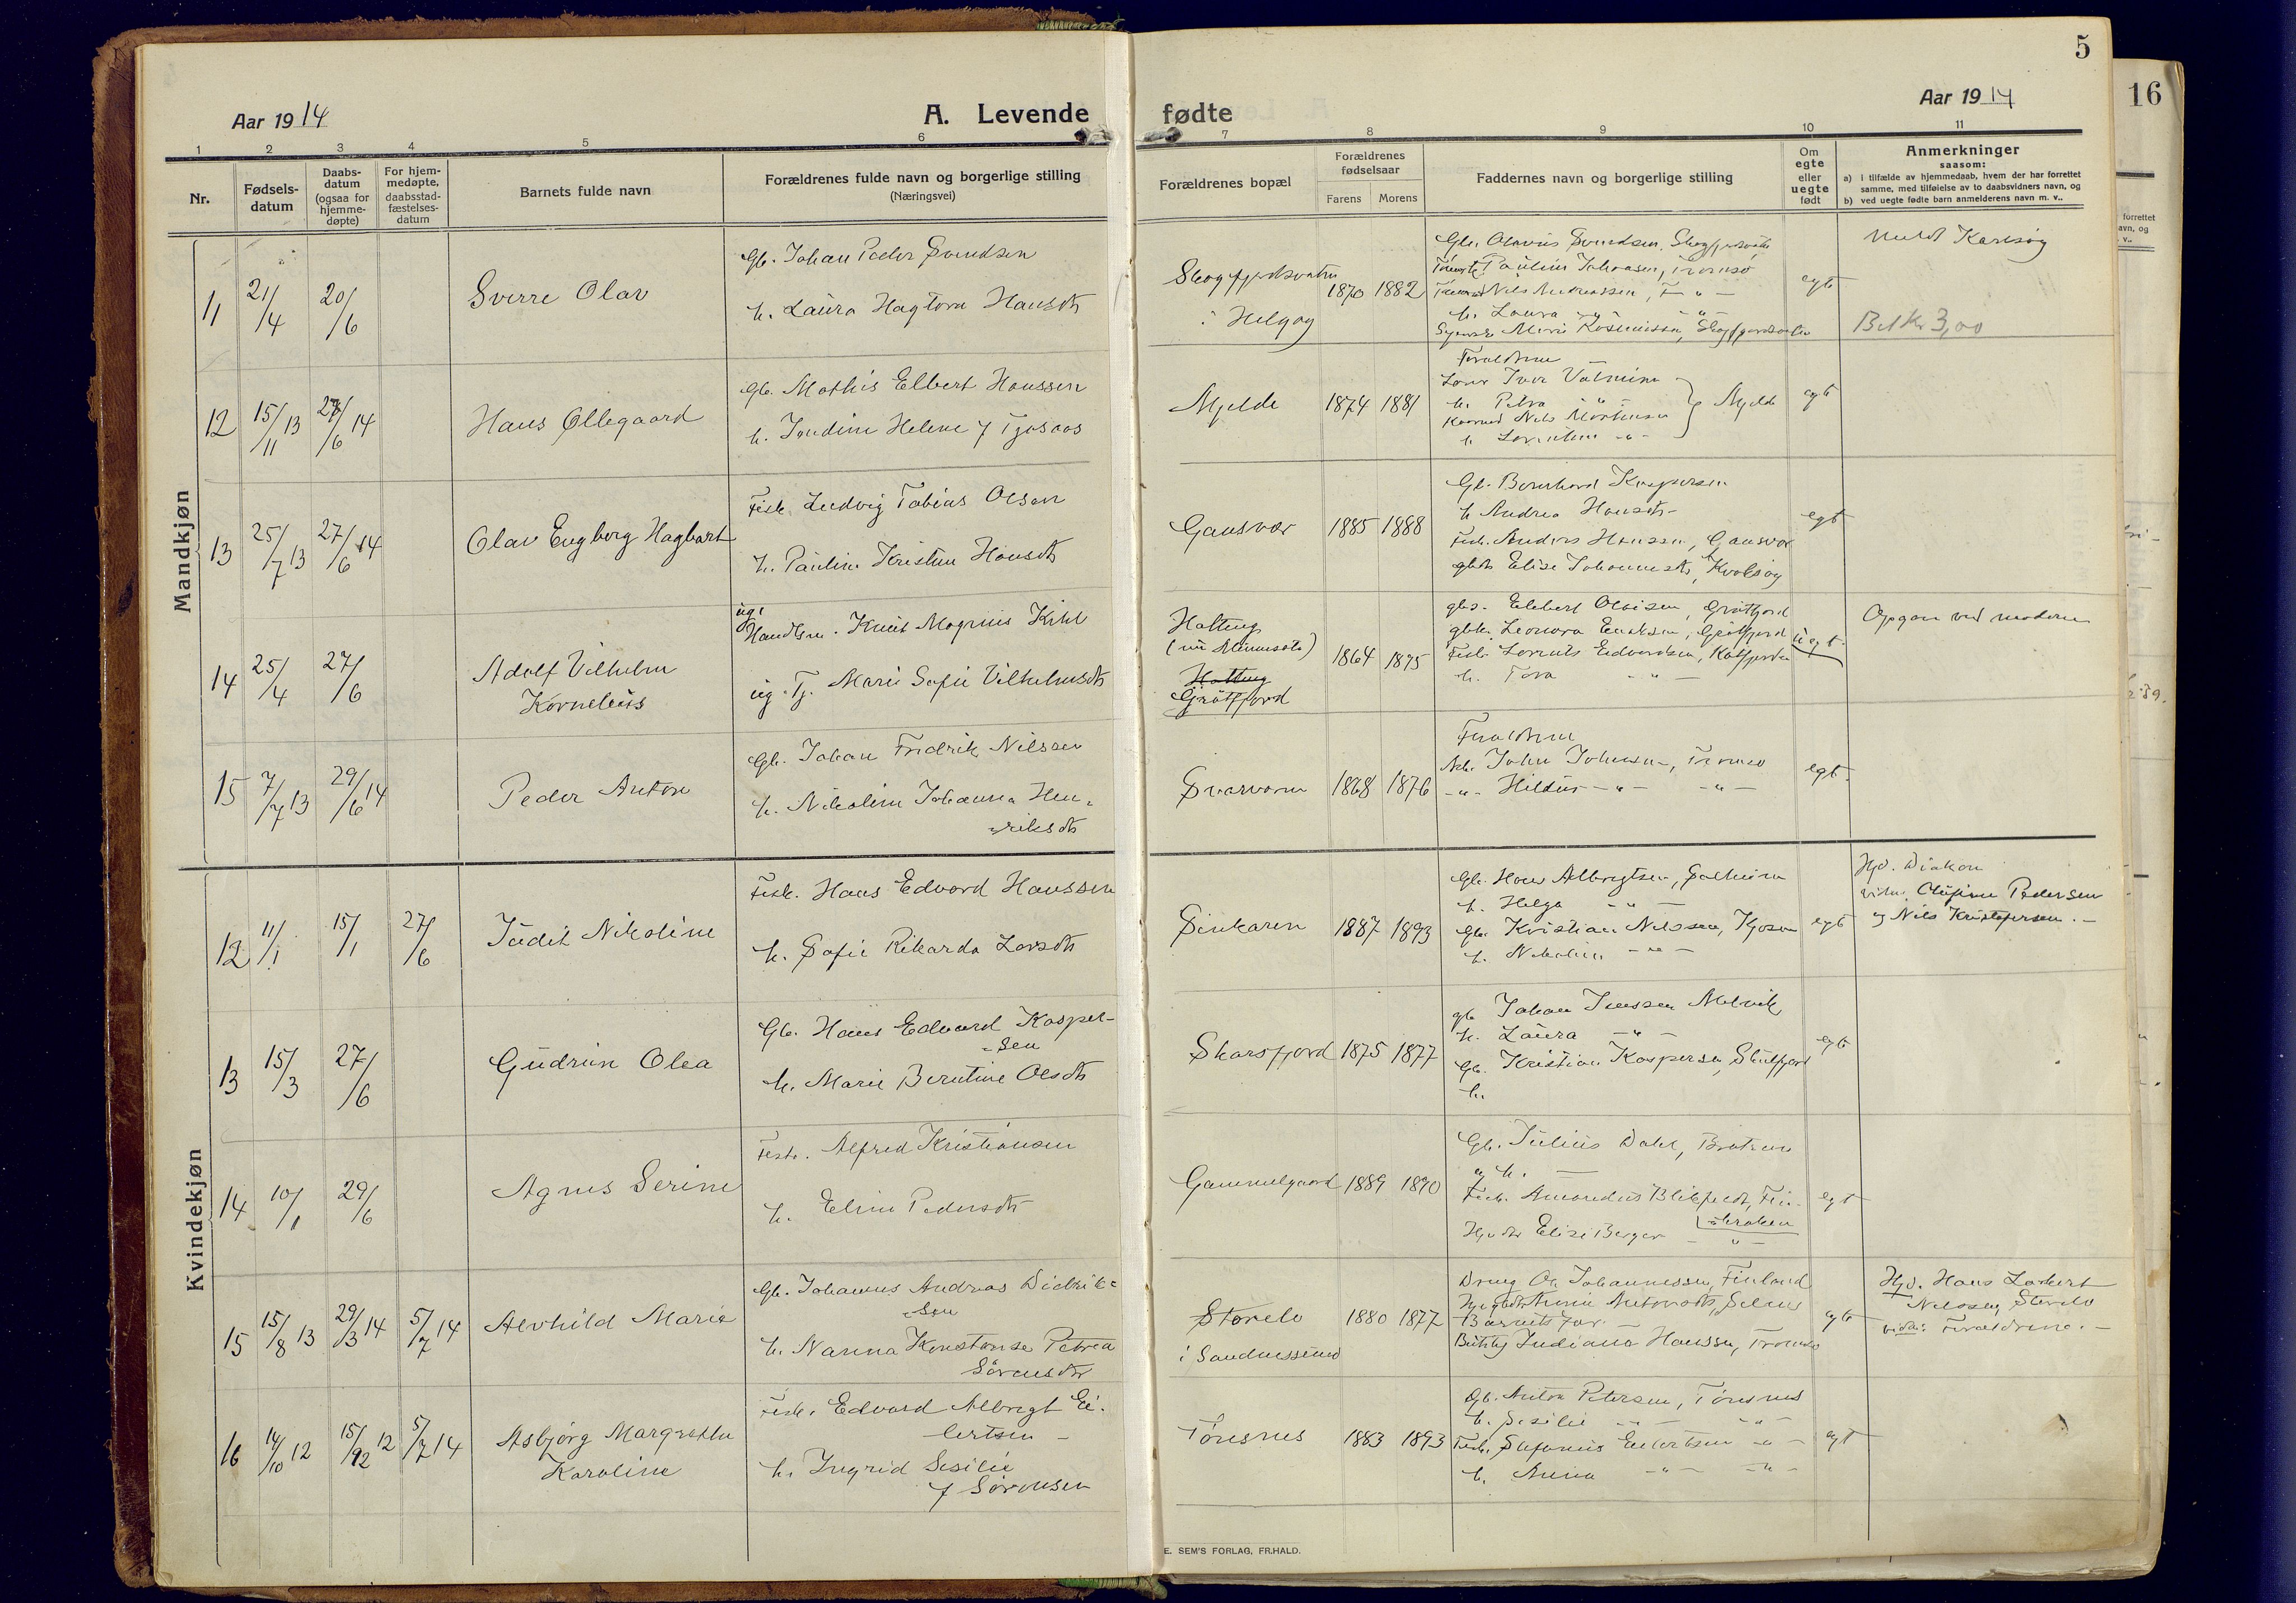 5
16
Aar 1914
A. Levende
fødte
Aar 1914
1 2 3 4 5 6 7 8 9 10 11
Nr.
Fødsels-
datum
Daabs-
datum
(ogsaa for
hjemme-
døpte)
For hjem-
medøpte,
daabsstad-
fæstelses-
datum
Barnets fulde navn
Forældrenes fulde navn og borgerlige stilling
(Næringsvei)
Forældrenes bopæl
Forældrenes
fødselsaar
Farens Morens
Faddernes navn og borgerlige stilling
Om
egte
eller
uegte
født
Anmerkninger
saasom:
a) i tilfælde av hjemmedaab, hvem der har forrettet
samme, med tilføielse av to daabsvidners navn, og
b) ved uegte fødte barn anmelderens navn m. v..
forrettet
avn, og
v..
Mandkjøn
11 21/4 20/6
Sverre Olav
Gb. Johan Peder Svendsen
h. Laura Hagtora Hansdtr
Skogsfjordvatn
i Helgøy
1870 1882
Paulin Johansen, Tromsø
Nils Andreassen, T " -
h. Laura - " -
egte
Meldt Karlsøy
Bet Kr 3,00
12 15/11 13 27/6 14
Hans Ollegaard
Gb. Mathis Elbert Hanssen
h. Jondine Helene f Tjosaas
Mjelde
1874 1881
Forældrene
h. Petra - " -
Konrad Nils Mortensen
Mjelde
egte
13 25/7 13 27/6 14
Olav Engberg Hagbart
Fisk. Ludvig Tobias Olsen
h. Pauline Kristine Hansdtr
Gaasvær
1885 1888
Gb. Bernhard Kaspersen
h Andrea Hansdtr
Fisk. Anders Hanssen, Gaasvær
gbdtr Elise Johannesdtr, Kvalsøy
egte
14 25/4 27/6
Adolf Vilhelm
Kornelius
ug.
Handlsm. Knut Magnus Kihl
ug. Tj. Marie Sofie Vilhelmsdtr
Hatteng
(nu Minnesota)
Hatteng
Grøtfjord
1864 1895
gbs. Elebert Olsisen, Grøtfjord
gbk. Leonora Enoksen, Grøtfjord
Fisk. Lorents Edvardsen, Katfjorden
h. Tora - " -
uegte
Opgav ved moderen
15 7/7 13 29/6 14
Peder Anton
Gb. Johan Fredrik Nilssen
h. Nikoline Johanna Hen-
riksdtr
Svarvarn
1868 1876
Forældrene
Arb. John Johnsen, Tromsø
- " - Hildur - " - - " -
egte
Kvindekjøn
12 11/1 15/1 27/6
Judit Nikoline
Fisk. Hans Edvard Hanssen
h. Sofie Rikarda Larsdtr
Finkaren
1887 1893
Gb. Hans Albrigtsen,
h. Helga - " -
Gb. Kristian Nilssen, Kjosen
h. Nikoline - " -
egte
Hjd. Diakon
vidn. Olufine Pedersen
og Nils Kristofersen. -
13 15/3 27/6
Gudrun Olea
Gb. Hans Edvard Kasper-
sen
h. Marie Berntine Olsdtr
Skarsfjord
1875 1877
gb. Johan Jenssen Molvik
h. Laura - " -
Gb. Kristian Kaspersen, Skulsfjord
h.
egte
14 10/1 29/6
Agnes Serine
Fisk. Alfred Kristiansen
h. Elen Pedersdtr
Gammelgaard
1889 1890
Gb. Julius Dahl, Bratrein
og h. -
Fisk. Amandus Blikfeldt, Fin-
kroken
Elise Berger - " -
egte
15 15/8 13 29/3 14 5/7 14
Alvhild Marie
Gb. Johannes Andreas Didrik-
sen
h. Nanna Konstanse Petrea
Sørensdtr
Storelv
i Sandnessund
1880 1877
Dreng Ole Johannessen, Finland
Barnets far
Indiana Hanssen, Tromsø
egte
Hjd. Hans Lambert
Nilssen, Storelv
vidn: Forældrene. -
16 14/10 12 15/12 12 5/7 14
Asbjørg Margrethe
Karoline
Fisk. Edvard Albrigt Ei-
lertsen -
h. Ingrid Sesilie
f Sørensen
Tønsnes
1883 1893
Gb. Anton Petersen, Tønsnes
h. Sesilie - " - - " -
Fisk. Stefanus Eilertsen - " -
h. Anna - " - - " -
egte
E. SEM'S FORLAG, FR.HALD.